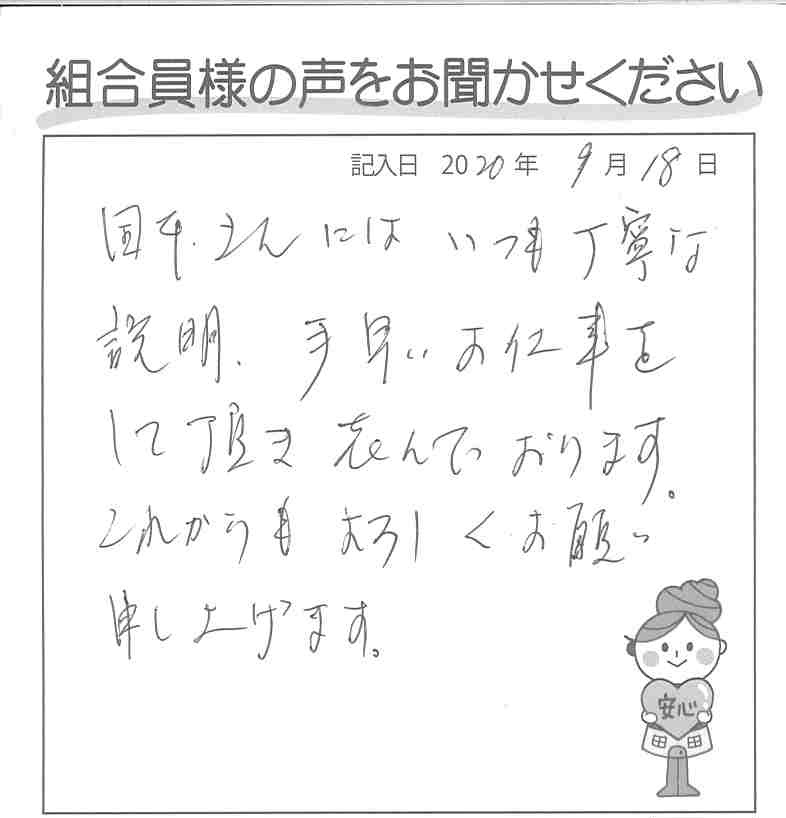 組合員様の声をお聞かせください
記入日 2020年 9月18日
さんには いつも丁寧な
説明、手早いお仕事を
して頂き 喜んでおります。
これからも よろしくお願い
申し上げます。
安心